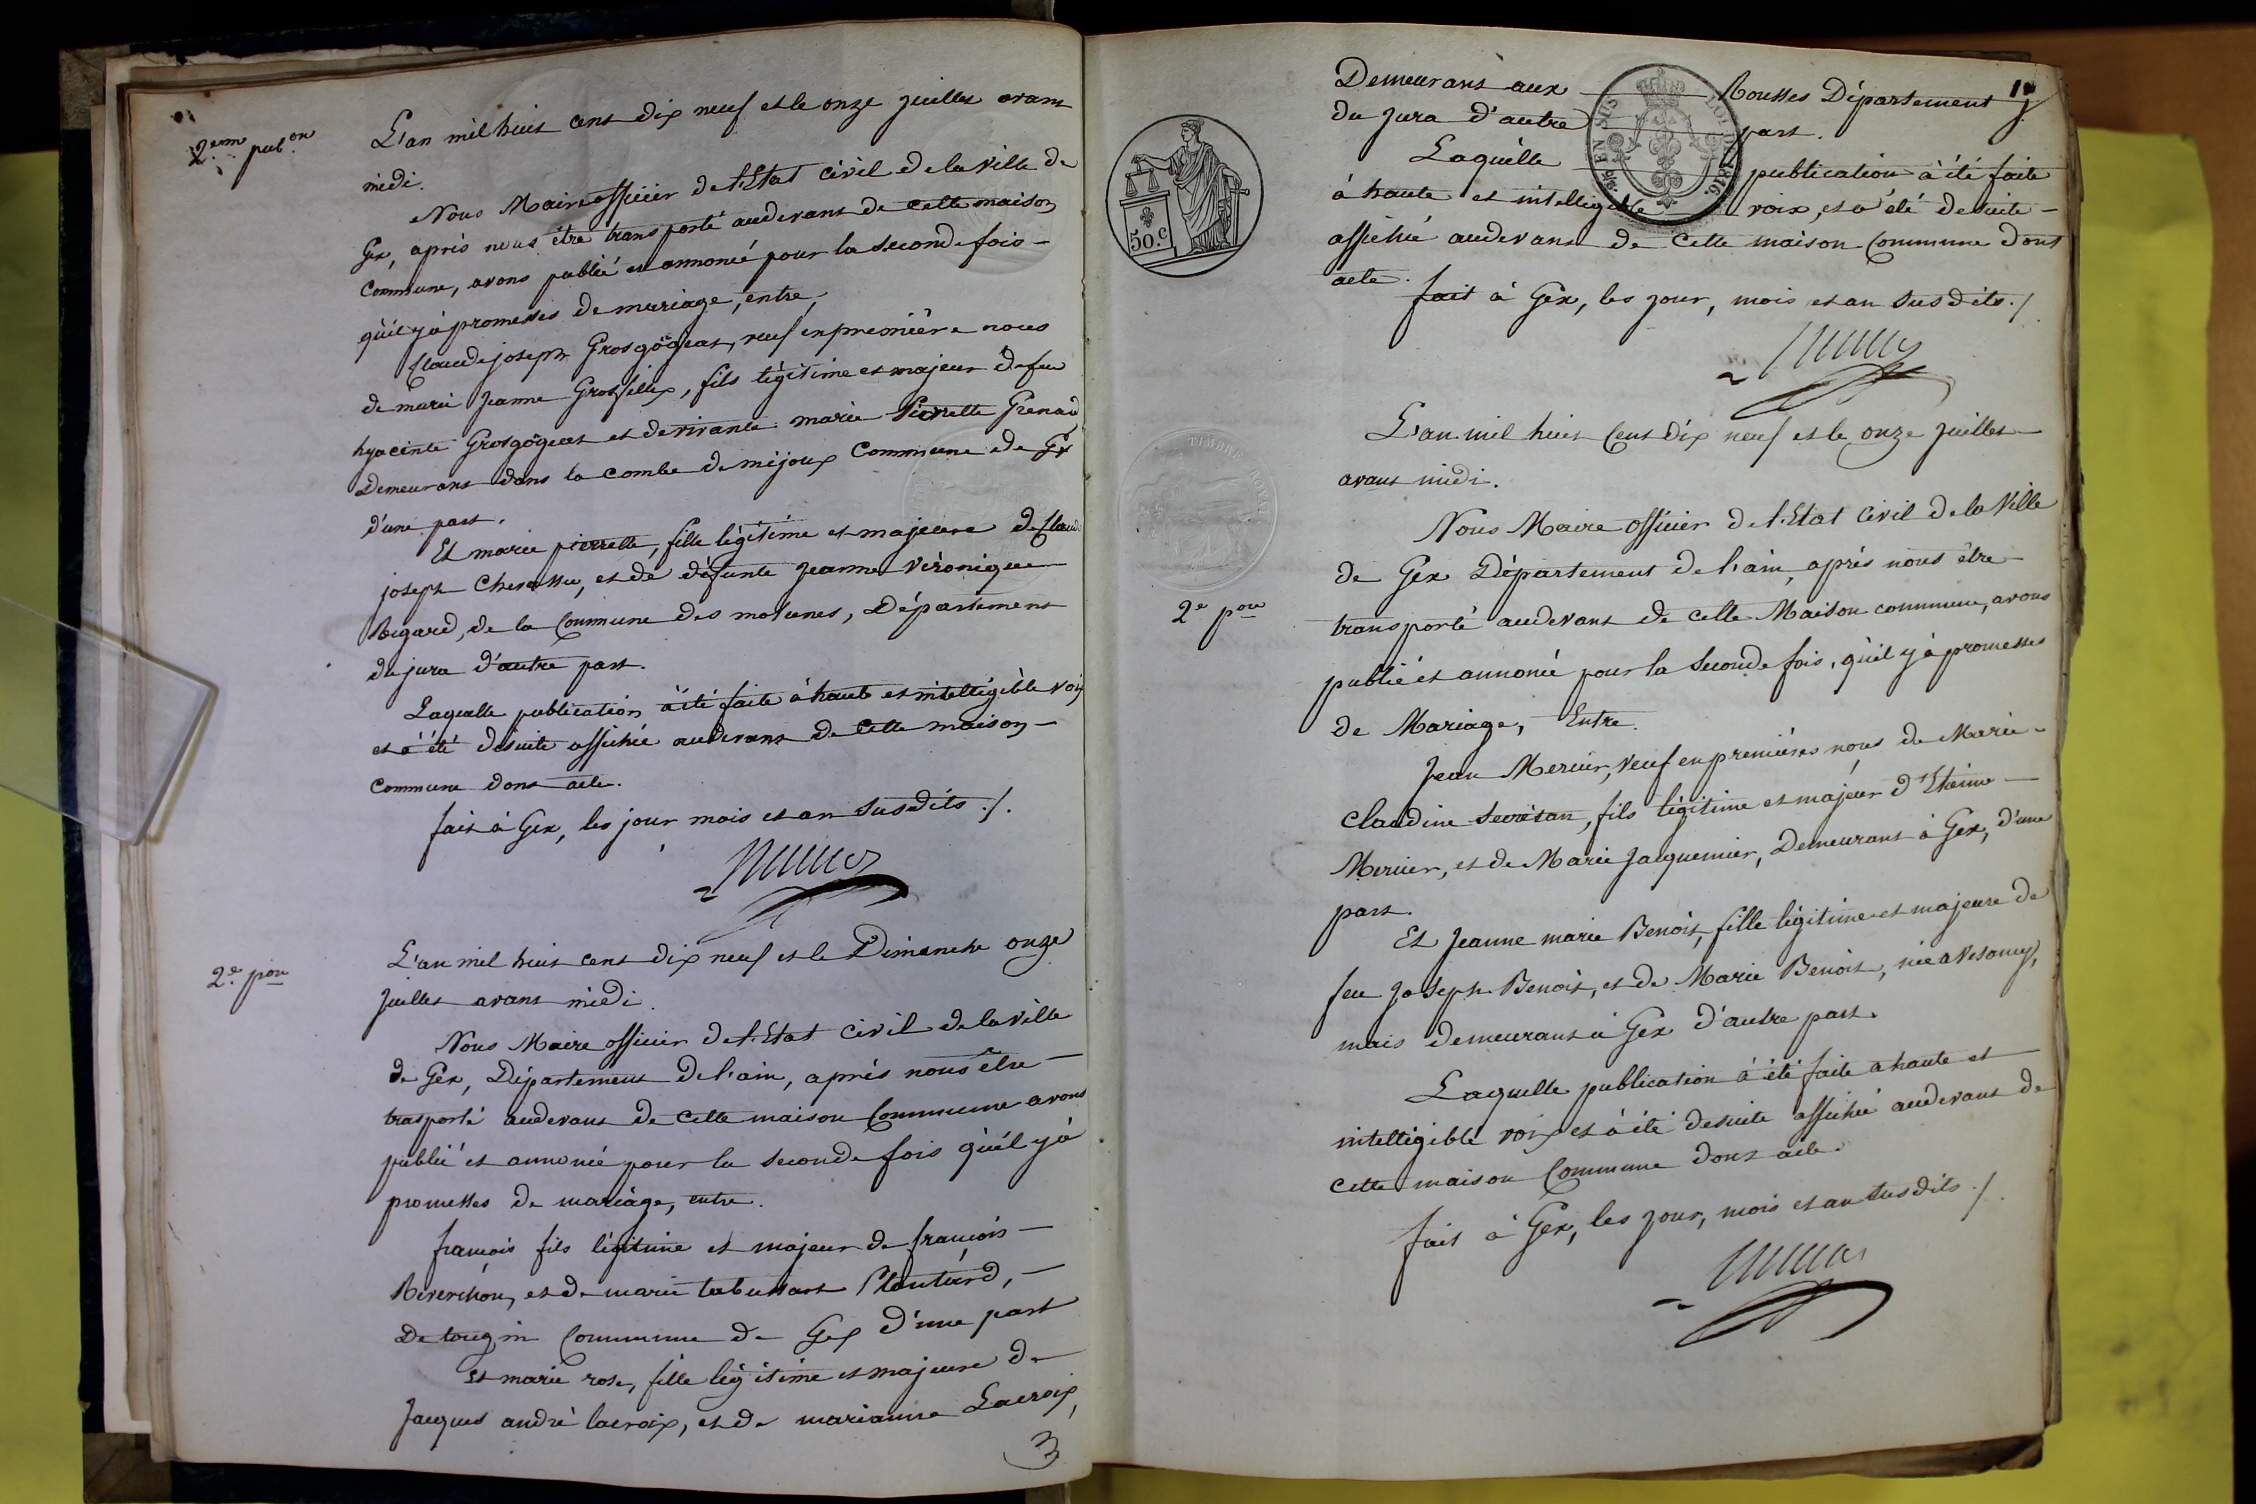 2.eme pub.on
L'an mil huit cent dix neuf et le onze juillet avant
midi.
Nous Maire officier de l'Etat civil de la ville de
Gex, après nous être transporté audevant de cette maison
commune, avons publié et annoncé pour la seconde fois
qu'il y à promesses de mariage, entre,
Claude joseph Grosgögeat, veuf en première noces
de marie Jeanne Grosfillex, fils légitime et majeur de feu
hyacinte Grosgögeat et de vivante marie Pierrette Grenard
demeurant dans la combe de mijoux Commune de Gex
d'une part.
Et marie pierrette, fille légitime et majeure de Claude
joseph Chevassu, et de défunte Jeanne Véronique
Regard, de la Commune des molunes, Département
du jura d'autre part.
Laquelle publication à été faite à haute et intelligible voix
et à été désuite affichée audevant de Cette maison
commune dont acte.
fait à Gex, les jour mois et an susdits ./.
2.e pon
L'an mil huit cent dix neuf et le Dimanche onze
Juillet avant midi.
Nous Maire officier de l'Etat civil de la ville
de Gex, Département de l'ain, après nous être
trasporté audevant de cette maison Commune avons
publié et annoncé pour la seconde fois qu'il y à
promesses de mariage, entre.
françois fils légitime et majeur de françois
Reverchon, et de marie tabussant Plantard,
De tougin Commune de Gex d'une part
Et marie rose, fille légitime et majeure de
Jacques andré lacroix, et de marianne Lacroix,
3
Demeurant aux Rousses Département
du Jura d'autre part.
Laquelle publication à été faite
à haute et intelligible voix, et à été desuite
affichée audevant de cette maison Commune dont
acte.
fait à Gex, les jour, mois et an susdits ./.
50.c
TIMBRE ROYAL
L'an mil huit Cent dix neuf et le onze juillet
avant midi.
Nous Maire officier de l'Etat Civil de la Ville
de Gex Département de l'ain, après nous être
2e pon
transporté audevant de cette Maison commune, avons
publié et annoncé pour la seconde fois, qu'il y à promesses
de Mariage, Entre.
Jean Mercier, veuf en premières noces de Marie
Claudine Secrétan, fils légitime et majeur d'Etienne
Mercier, et de Marie Jacquemier, Demeurant à Gex, d'une
part.
Et Jeanne marie Benoit, fille légitime et majeure de
feu Joseph Benoit, et de Marie Benoit, née a Vesancy,
mais demeurant à Gex d'autre part.
Laquelle publication à été faite a haute et
intelligible voix et à été desuite affichée audevant de
cette maison Commune dont acte.
fait à Gex, les jour, mois et an susdits ./.